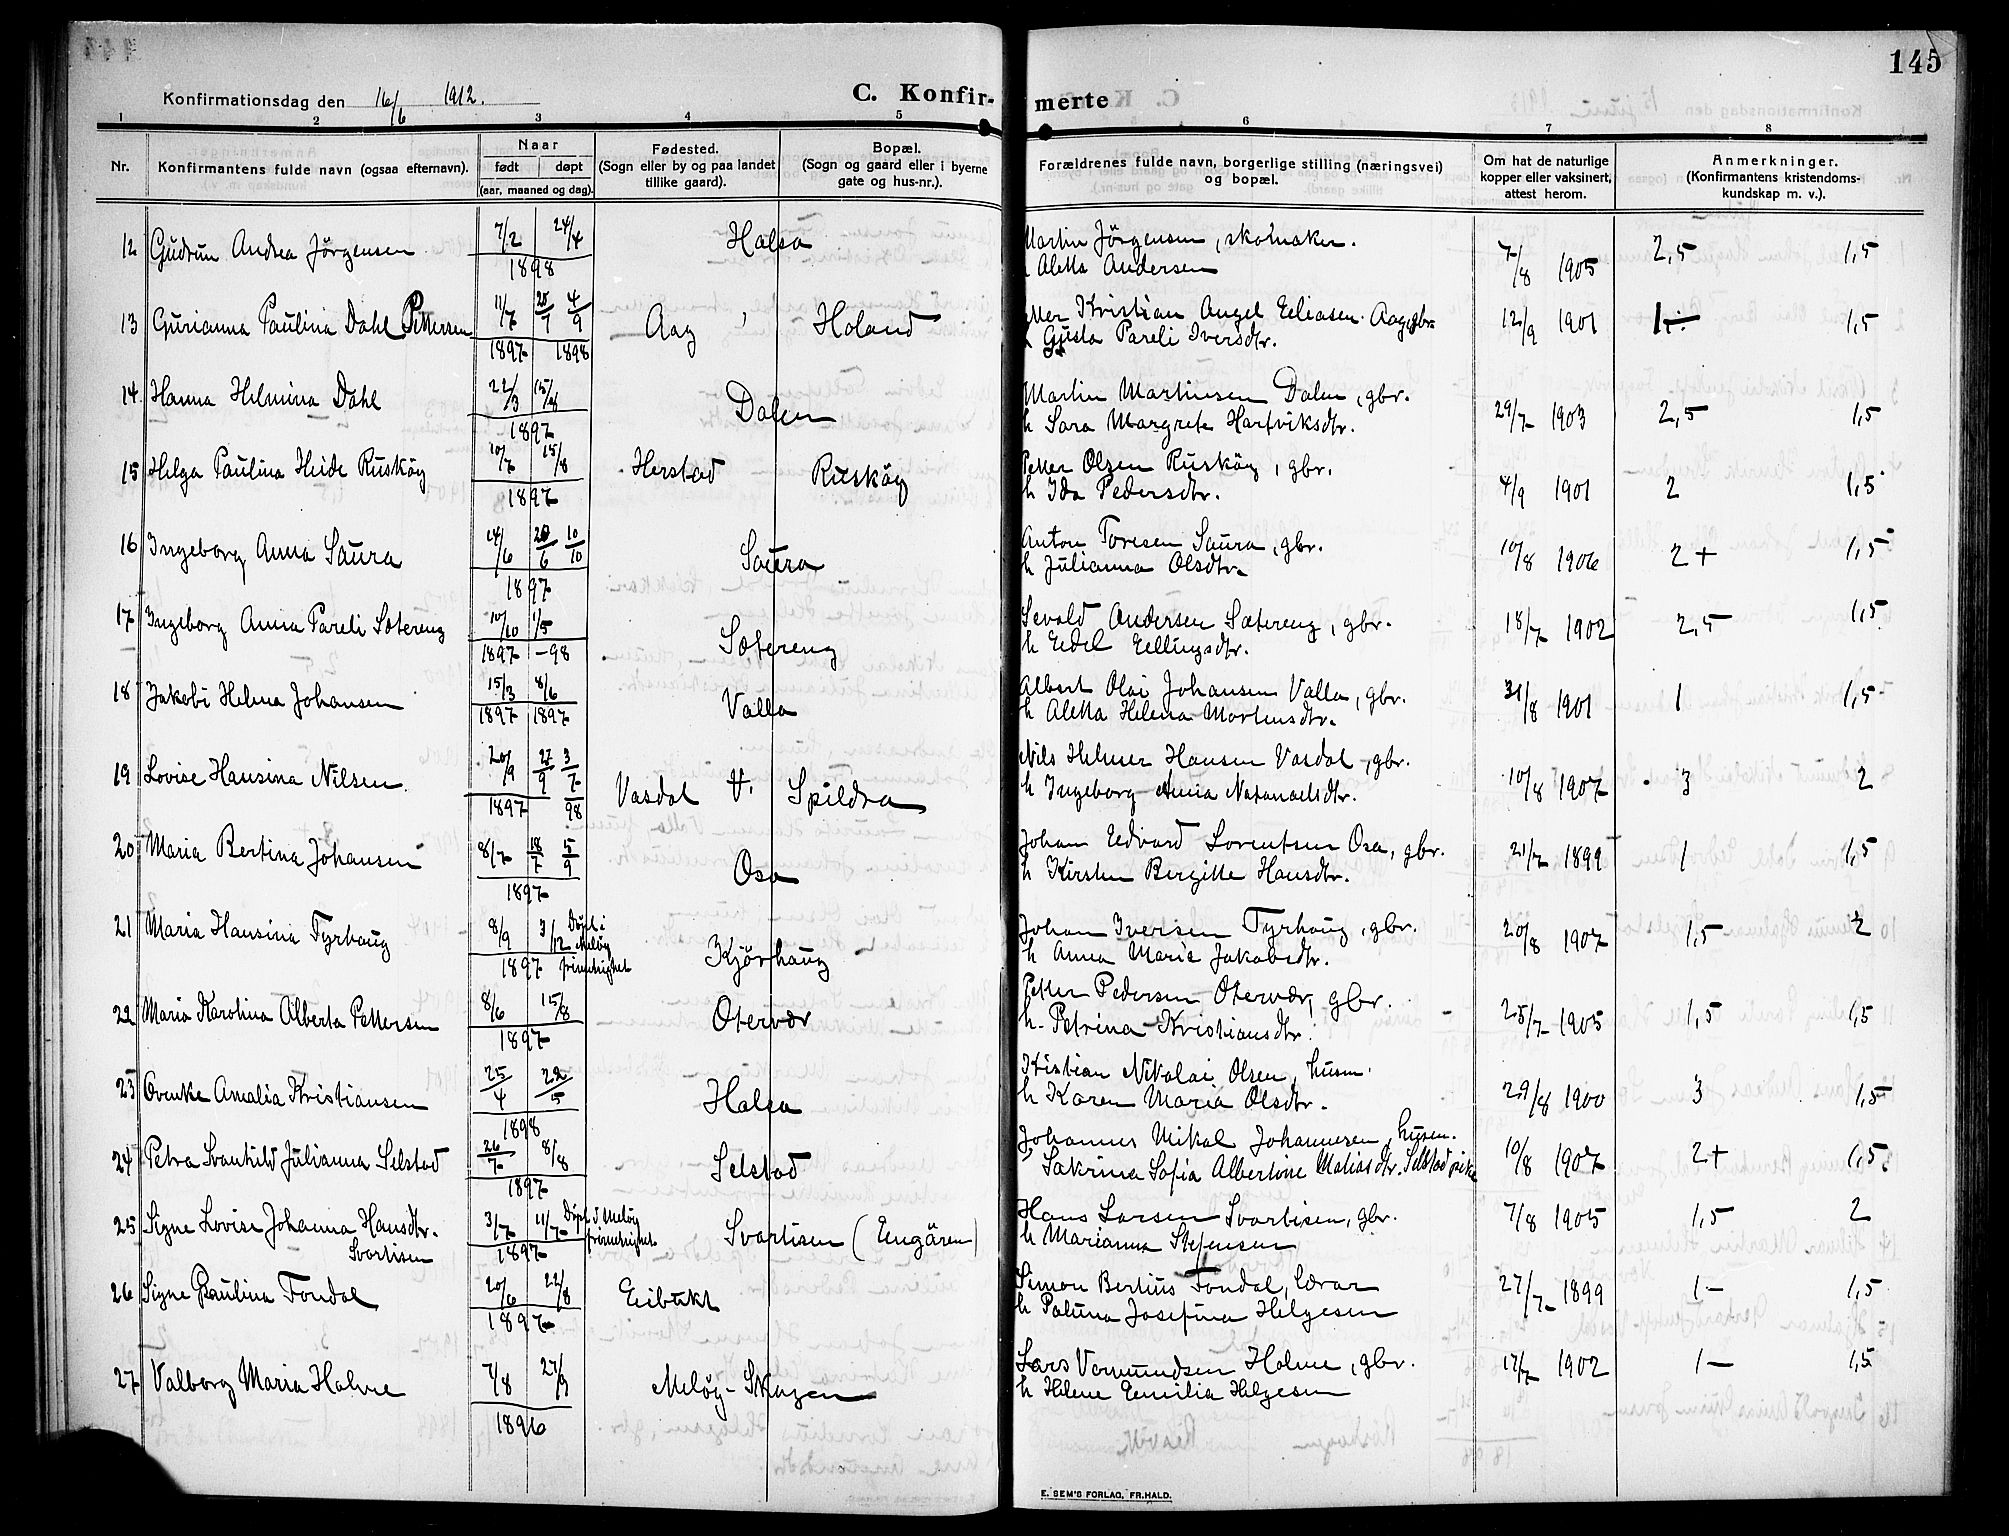 145
Konfirmationsdag den 16/6 1912.
C. Konfir-
merte
1 2 3 4 5 6 7 8
Nr.
Konfirmantens fulde navn (ogsaa efternavn).
Naar
født døpt
(aar, maaned og dag).
Fødested.
(Sogn eller by og paa landet
tillike gaard).
Bopæl.
(Sogn og gaard eller i byerne
gate og hus-nr.).
Forældrenes fulde navn, borgerlige stilling (næringsvei)
og bopæl.
Om hat de naturlige
kopper eller vaksinert,
attest herom.
Anmerkninger.
(Konfirmantens kristendoms-
kundskap m. v.).
12 Gudrun Andrea Jörgensen 7/2 24/4 1898 Halsa
Martin Jörgensen, skomaker.
Aletta Andersen
7/8 1905 2,5 1,5
13 Gurianna Paulina Dahl Pettersen 11/7 25/7 4/9 1897 1898 Aag Holand
Petter Kristian Angel Eliasen Aag, gbr.
Gusta Pareli Iversdtr.
12/9 1901 1 ÷ 1,5
14 Hanna Helmina Dahl 22/3 15/8 1897 Dalen
Martin Martinsen Dalen, gbr.
h Sara Margrete Hartviksdtr.
29/7 1903 2,5 1,5
15 Helga Paulina Heide Ruskög 10/7 15/8 1897 Herstad Ruskög
Petter Olsen Ruskög, gbr.
h Ida Pedersdtr.
4/9 1901 2 1,5
16 Ingeborg Anna Saura 14/6 20/6 10/10 1897 Saura
Anton Toresen Saura, gbr.
h Julianna Olsdtr.
10/8 1906 2+ 1,5
17 Ingeborg Anna Pareli Sætereng 10/10 1/5 1897 -98 Sætereng
Sevald Andersen Sætereng, gbr.
h Edel Ellingsdtr.
18/7 1902 2,5 1,5
18 Jakobi Helena Johansen 15/3 8/6 1897 1897 Valla
Albert Olai Johansen Valla, gbr.
h Aletta Helena Mortensdtr.
31/8 1901 1 1,5
19 Lovise Hansina Nilsen 20/9 27/9 3/7 1897 98 Vasdal Spildra
Nils Helmer Hansen Vasdal, gbr.
h Ingeborg Anna Natanaelsdtr.
10/8 1907 3 2
20 Maria Bertina Johansen 8/7 18/7 15/9 1897 Osa
Johan Edvard Lorentsen Osa, gbr.
h Kirsten Bergitte Hansdtr.
21/7 1899 1 1,5
21 Maria Hansina Tyrhaug 8/9 3/12 1897 Döpt i Melöy frimenighet Kjörhaug
Johan Iversen Tyrhaug, gbr.
h Anna Marie Jakobsdtr.
20/8 1907 1,5 2
22 Maria Karolina Alberta Pettersen 8/6 15/8 1897 Otervær
Petter Pedersen Otervær, gbr.
h. Petrina Kristiansdtr.
25/7 1905 1,5 1,5
23 Ovenke Amalia Kristiansen 25/4 22/5 1898 Halsa
Kristian Nikolai Olsen, husm.
h Karen Maria Olsdtr.
29/8 1900 3 1,5
24 Petra Svanhild Julianna Selstad 26/7 8/8 1897 Selstad
Johannes Mikal Johannesen, husm.
Sakrina Sofia Albertine Matiasdtr. Selstad pike
10/8 1907 2+ 1,5
25 Signe Lovise Johanna Hansdtr. 3/7 11/7 1897 Döpt i Melöy frimenighet Svartisen (Engåren)
Svartisen
Hans Larsen Svartisen, gbr.
h Marianna Stefensen
7/8 1905 1,5 2
26 Signe Paulina Fondal 20/6 22/8 1897 Eibukt
Simon Bertius Fondal, lærar
h Palina Josefina Helgesen
27/7 1899 1- 1,5
27 Valborg Maria Holme 7/8 27/9 1896 Melöy-Skagen
Lars Vermundsen Holme, gbr.
h Helene Emilia Helgesen
17/7 1902 1- 1,5
E. SEM'S FORLAG, FR.HALD.